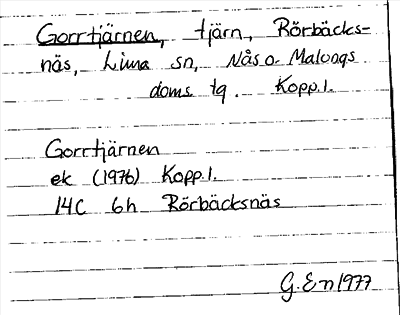 Gorrtjärnen, tjärn, Rörbäcks-
näs, Lima sn, Nås o. Malungs
doms. tg. Kopp.l.
Gorrtjärnen
ek (1976) Kopp.l.
14C 6h Rörbäcksnäs
G.En 1977